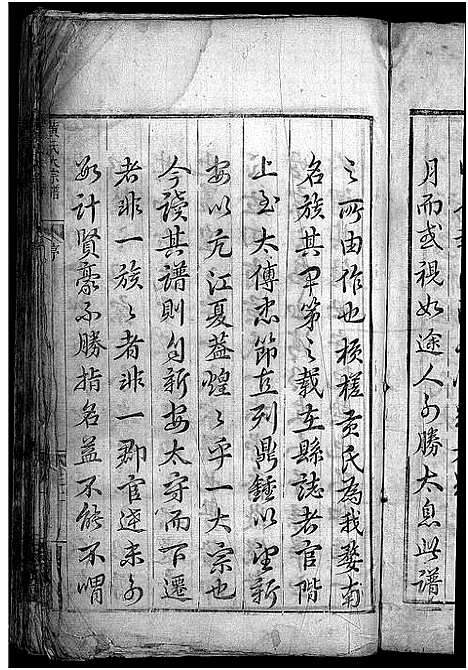 月而或視如途人可勝太息此譜
之所由作也橫槎黄氏為我婺南
名族其甲第之載在縣誌者官階
上至太傅忠節直列鼎鍾以望新
安以亢江夏蓋煌々乎一大宗也
今讀其譜則自新安太守而下遷
者非一族々者非一郡官迹未可
數計賢豪不勝指名益不能不喟
黄氏宗譜
序